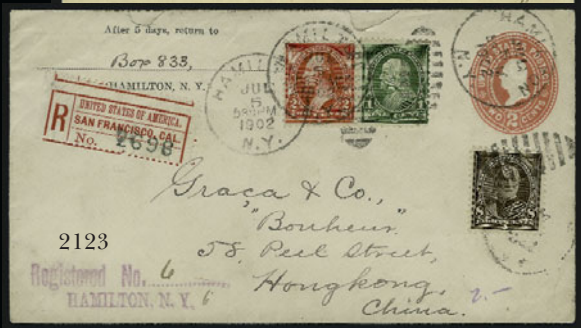 After 5 days, return to
Box 833,
HAMILTON, N. Y.
R
UNITED STATES OF AMERICA.
SAN FRANCISCO, CAL.
No. 2698
HAMILTON
JUL
5
1902
N.Y.
TWO 2 CENTS
Graça & Co.,
"Bonheur"
58, Peel Street,
Hongkong,
China.
2123
Registered No. 6
HAMILTON, N. Y. 6
2.-